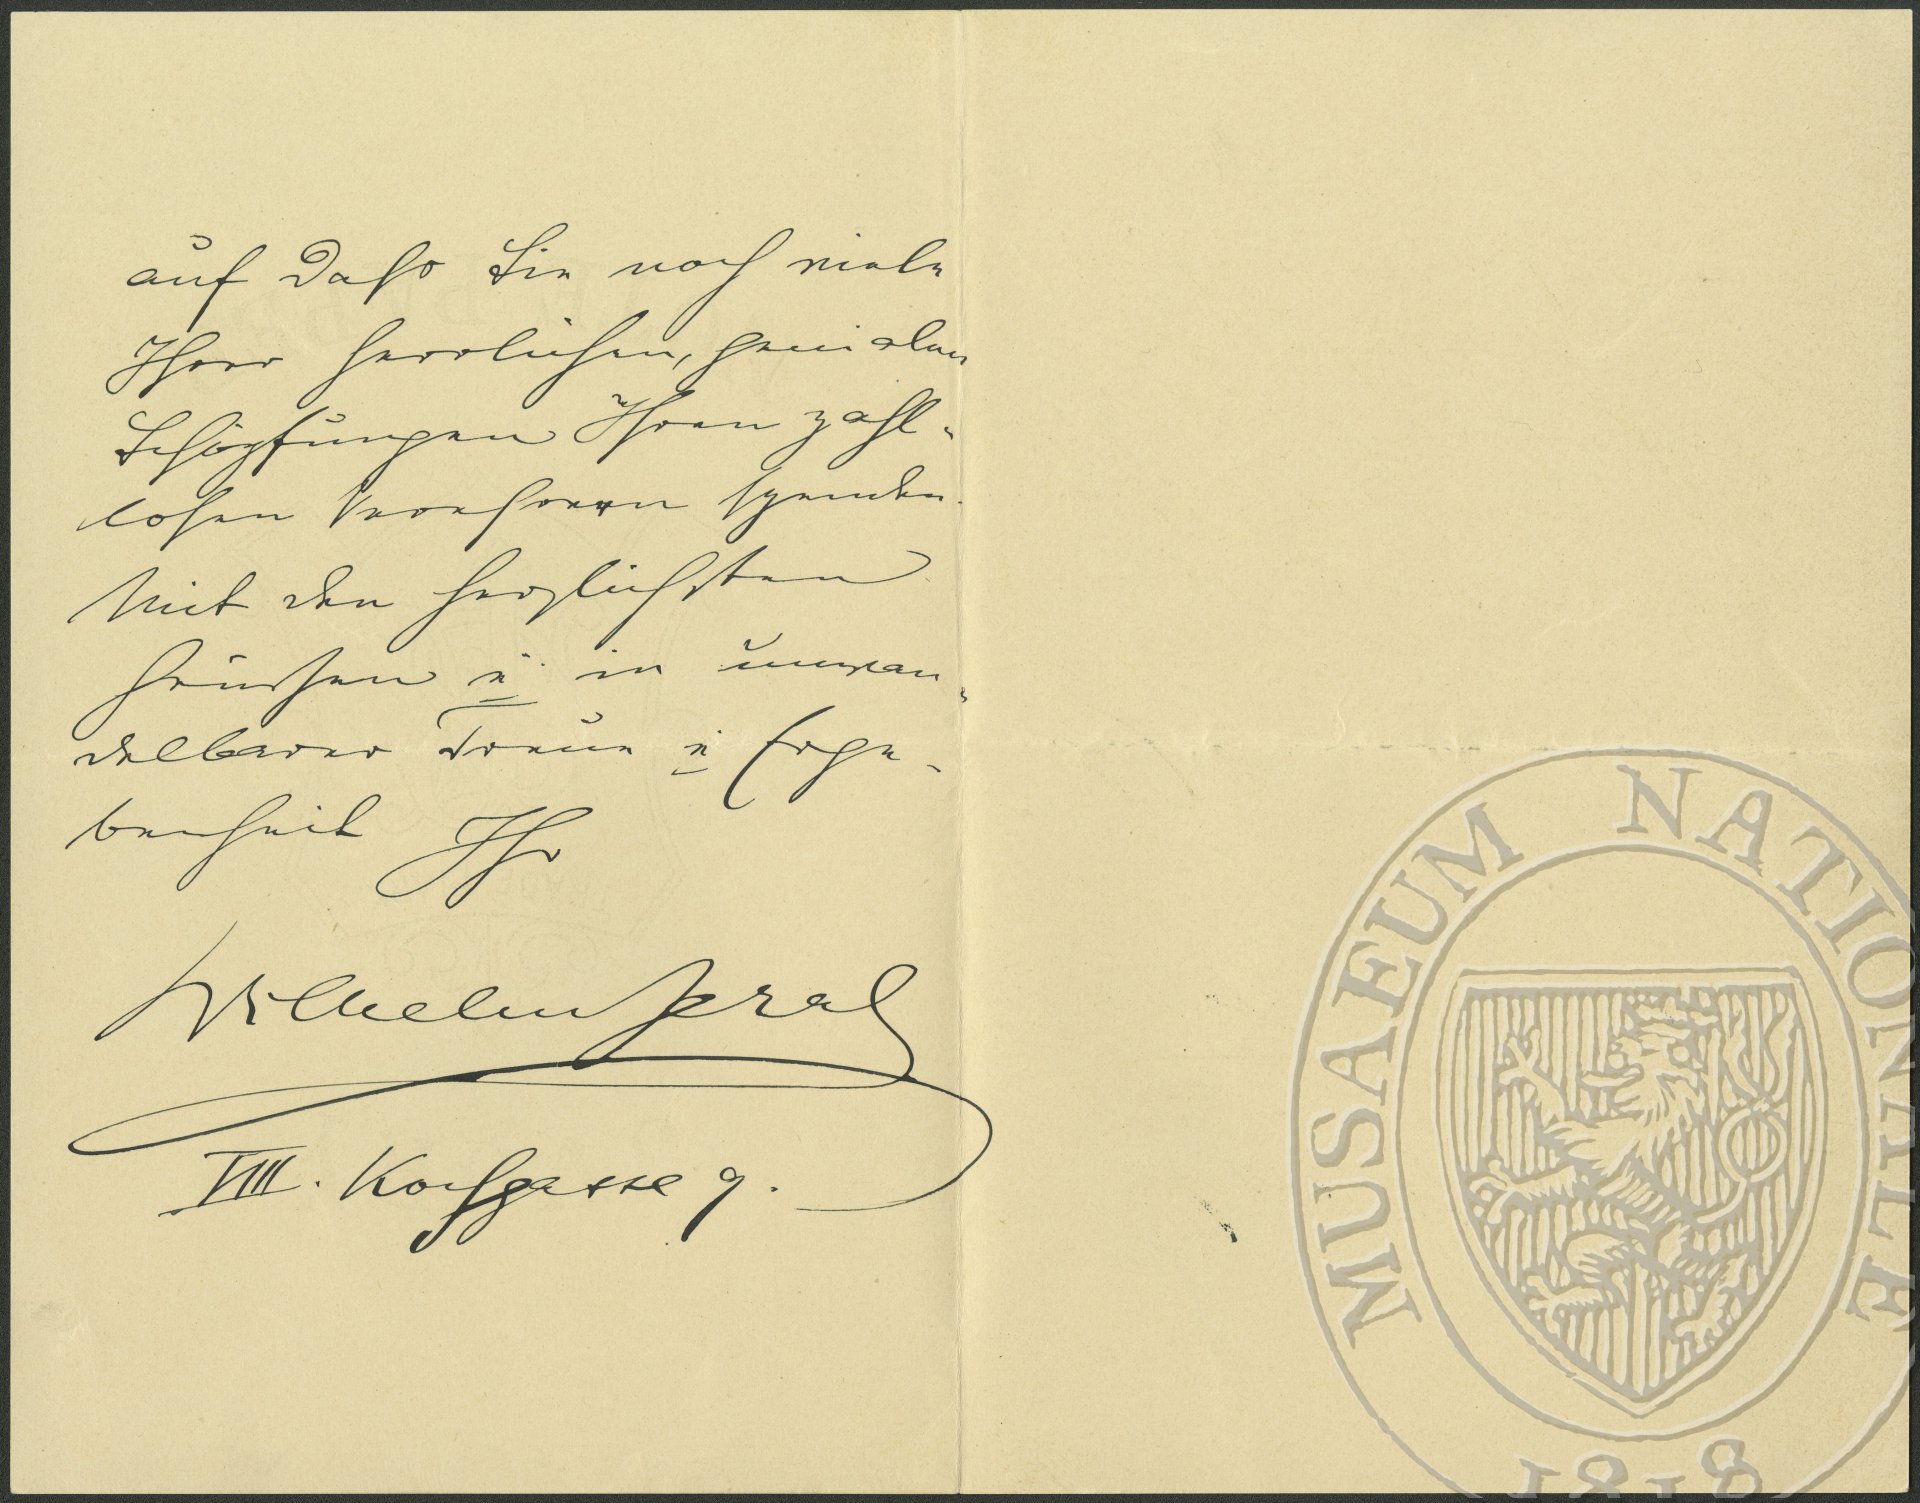 auf daß Sie noch viele
Ihrer herrlichen, genialen
Schöpfungen Ihren zahl-
losen Verehrern spenden.
Mit den herzlichsten
Grüßen u. in unwan-
delbarer Treue u. Erge-
benheit Ihr
Wilhelm Jeral
VIII. Kochgasse 9.
MUSAEUM NATIONALE
1818